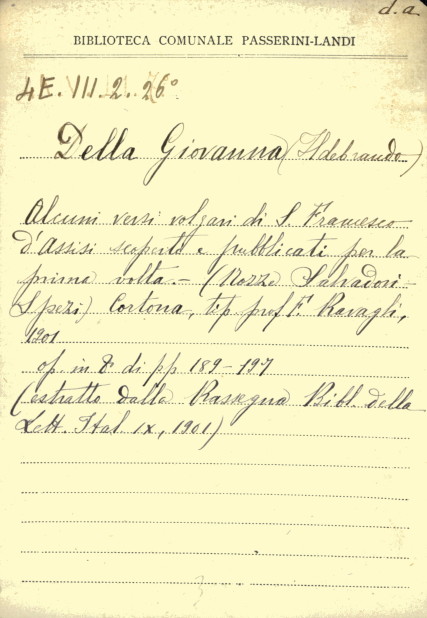 d.a.
BIBLIOTECA COMUNALE PASSERINI-LANDI
4E. VII. 2. 26°
Della Giovanna (Ildebrando)
Alcuni versi volgari di S. Francesco
d'Assisi scoperti e pubblicati per la
prima volta. - (Nozze Salvadori-
Spezi) Cortona, tip prof F. Ravagli,
1901
op. in 8° di pp 189-197
(estratto dalla Rassegna Bibl. della
Lett. Ital. IX, 1901)